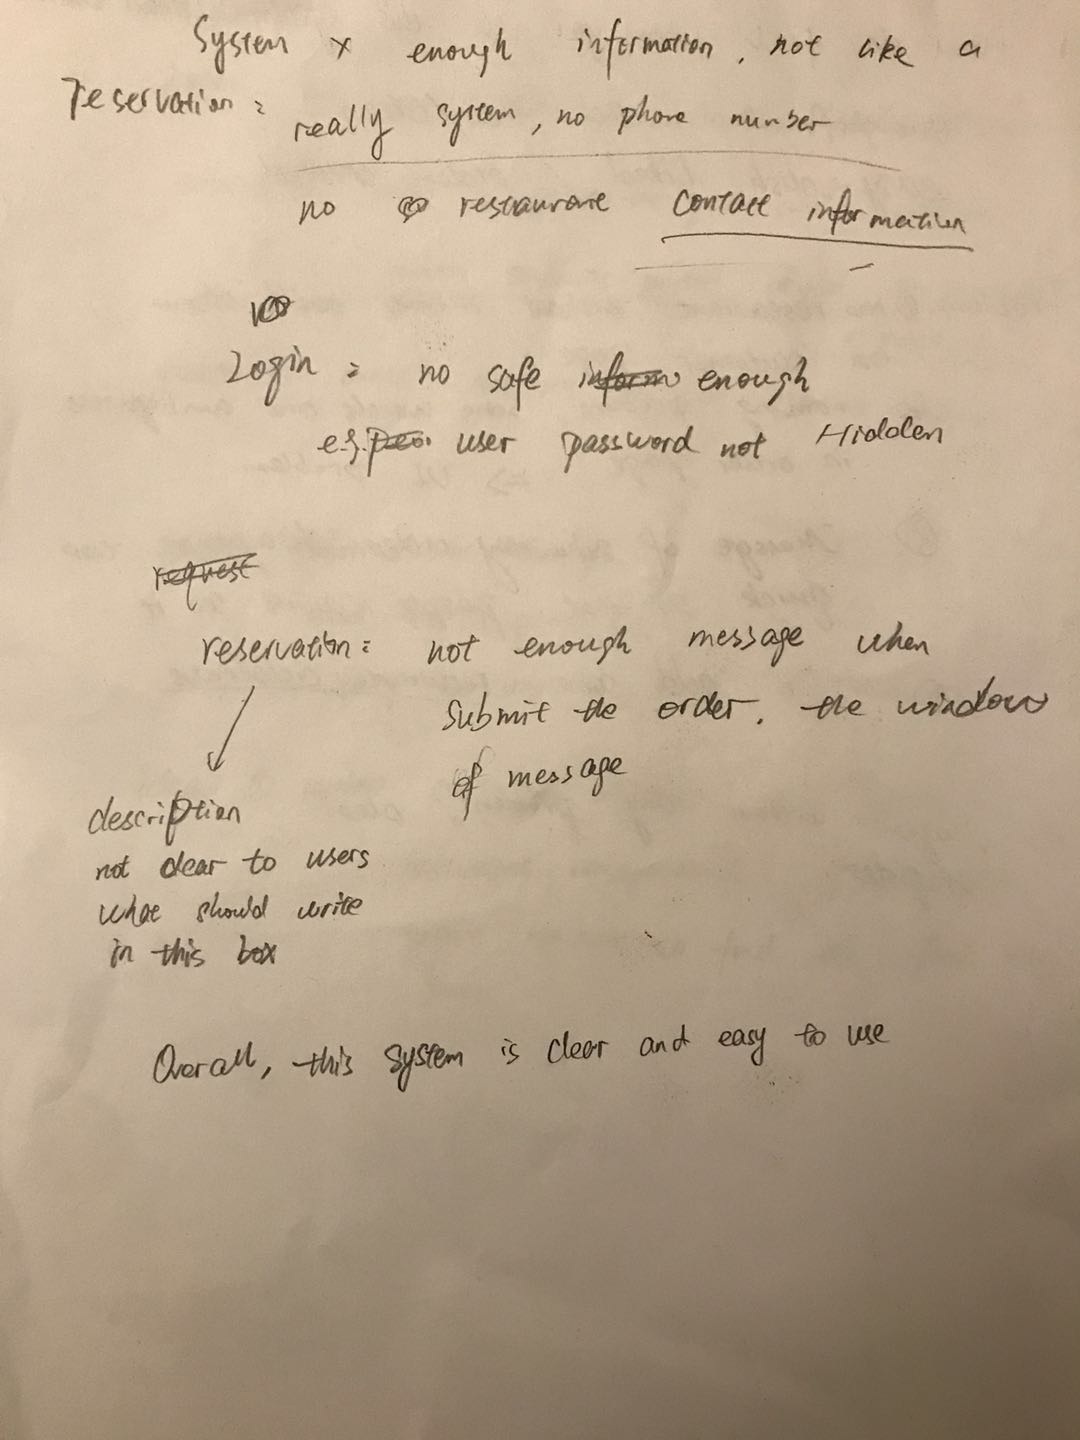 System x enough information, not like a
reservation: really system, no phone number
no restaurant contact information
Login: no safe enough
e.g. user password not Hidden
request
reservation: not enough message when
submit the order. the window
of message
description
not clear to users
what should write
in this box
Overall, this system is clear and easy to use